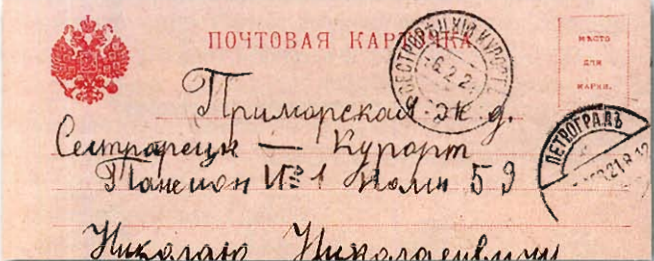 ПОЧТОВАЯ КАРТОЧКА
МѢСТО
ДЛЯ
МАРКИ.
СЕСТРОРѢЦКІЙ КУРОРТЪ
6.2.2
Приморская ж. д.
ПЕТРОГРАДЪ
Сестрарецк — Курорт
Пансион № 1 комн 59
Николаю Николаевичу